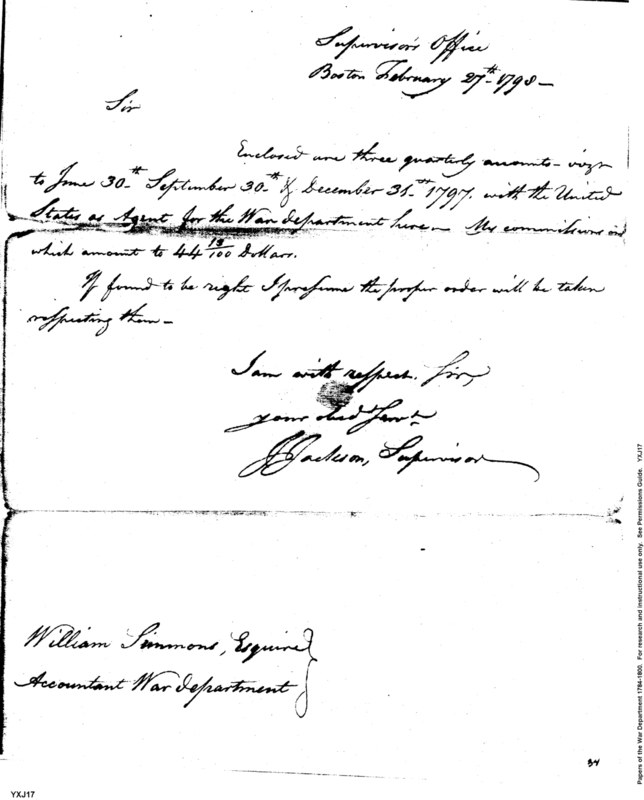 Supervisor's Office
Boston February 27th 1798 —
Sir
Enclosed are three quarterly accounts — vizt
to June 30th September 30th & December 31st 1797. with the United
States as Agent for the War department here — My commissions on
which amount to 44 13/100 Dollars.
If found to be right I presume the proper order will be taken
respecting them —
I am with respect. Sir,
your obed Servt
J Jackson, Supervisor
William Simmons, Esquire
Accountant War department
34
YXJ17
Papers of the War Department 1784-1800. For research and instructional use only. See Permissions Guide. YXJ17